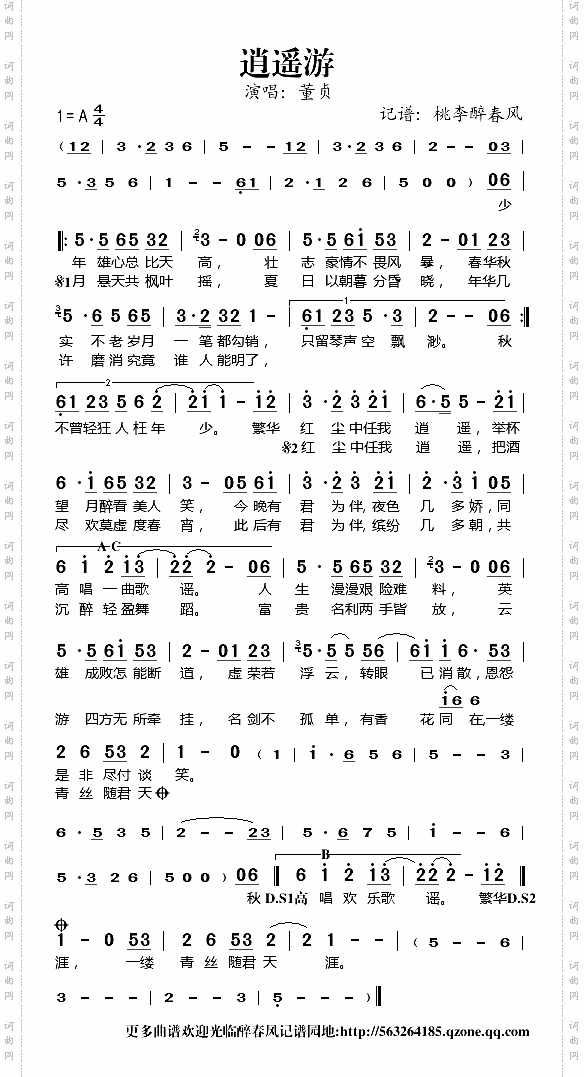 逍遥游
演唱：董贞
1=A 4/4
记谱：桃李醉春风
( 12 | 3 · 2 3 6 | 5 - - 12 | 3 · 2 3 6 | 2 - - 03
5 · 3 5 6 | 1 - - 61 | 2 · 1 2 6 | 5 0 0 ) 06
少
‖: 5 · 5 65 32 | 3 - 0 06 | 5 · 5 61 53 | 2 - 01 23
年 雄心总 比天 高， 壮 志 豪情不 畏风 暴， 春华秋
𝄋1月 悬天共 枫叶 摇， 夏 日 以朝暮 分昏 晓， 年华几
5 · 6 65 5 · | 3 · 2 32 1 - | 61 23 5 · 3 | 2 - - 06 :‖
实 不老 岁月 一 笔 都勾销， 只留琴声 空 飘 渺。 秋
许 磨消 究竟 谁 人 能明了，
61 23 5 6 2 | 2 1 1 - 12 | 3 · 2 3 21 | 6 · 5 5 - 21
不曾轻狂 人 枉 年 少。 繁华 红 尘 中任我 逍 遥， 举杯
𝄋2 红 尘 中任我 逍 遥， 把酒
6 · 1 65 32 | 3 - 05 61 | 3 · 1 2 21 | 6 1 2 3 · 5
望 月醉看 美人 笑， 今 晚有 君 为 伴, 夜色 几 多 娇, 同
尽 欢莫虚 度春 宵， 此 后有 君 为 伴, 缤纷 几 多 朝, 共
A C
6 1 2 13 | 22 2 - 06 | 5 · 5 65 32 | 3 - 0 06
高 唱 一 曲歌 谣。 人 生 漫漫艰 险难 料， 英
沉 醉 轻 盈舞 蹈。 富 贵 名利两 手皆 放， 云
5 · 5 61 53 | 2 - 01 23 | 5 · 5 55 56 | 61 1 6 · 53
雄 成败怎 能断 道， 虚 荣若 浮 云， 转眼 已 消散, 恩怨
i6 6
游 四方无 所牵 挂， 名 剑不 孤 单， 有香 花 同 在, 一缕
2 6 53 2 | 1 - 0 ( 1 | 1 · 6 5 6 | 5 - - 3
是 非 尽付 谈 笑。
青 丝 随君 天
6 · 5 3 5 | 2 - - 23 | 5 · 6 7 5 | 1 - - 6
B
5 · 3 2 6 | 5 0 0 ) 06 ‖ 6 1 2 13 | 22 2 - 12
秋 D.S1高 唱 欢 乐歌 谣。 繁华D.S2
1 - 0 53 | 2 6 53 2 | 2 1 - - | ( 5 - - 6
涯， 一缕 青 丝 随君 天 涯。
3 - - - | 2 - - 3 | 5 - - - ) ‖
更多曲谱欢迎光临醉春风记谱园地:http://563264185.qzone.qq.com
词曲网